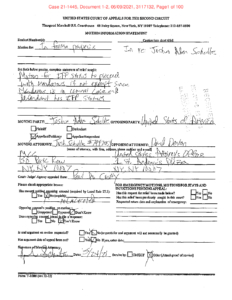 Case 21-1445, Document 1-2, 06/09/2021, 3117132, Page1 of 100
UNITED STATES COURT OF APPEALS FOR THE SECOND CIRCUIT
Thurgood Marshall U.S. Courthouse 40 Foley Square, New York, NY 10007 Telephone: 212-857-8500
MOTION INFORMATION STATEMENT
Docket Number(s):
Caption [use short title]
Motion for: In forma pauperis
In re: Joshua Adam Schulte
Set forth below precise, complete statement of relief sought:
Motion for IFP status to proceed
with mandamus
Mandamus is a criminal case and
defendant has IFP status
MOVING PARTY: Joshua Adam Schulte OPPOSING PARTY: United States of America
Plaintiff Defendant
Appellant/Petitioner Appellee/Respondent
MOVING ATTORNEY: Josh Schulte OPPOSING ATTORNEY: David Denton
MCC United States Attorney's Office
150 Park Row
NY, NY 10007 NY, NY 10007
Court-Judge/Agency appealed from: Paul A. Crotty
Please check appropriate boxes:
Has movant notified opposing counsel (required by Local Rule 27.1):
Yes No
Opposing counsel's position on motion:
Unopposed Opposed Don't Know
Does opposing counsel intend to file a response:
Yes No Don't Know
Has this request for relief been made below? Yes No
Has this relief been previously sought in this court? Yes No
Requested return date and explanation of emergency:
Is oral argument on motion requested? Yes No (requests for oral argument will not necessarily be granted)
Has argument date of appeal been set? Yes No If yes, enter date:
Signature of Moving Attorney:
Date: Service by: CM/ECF Other [Attach proof of service]
Form T-1080